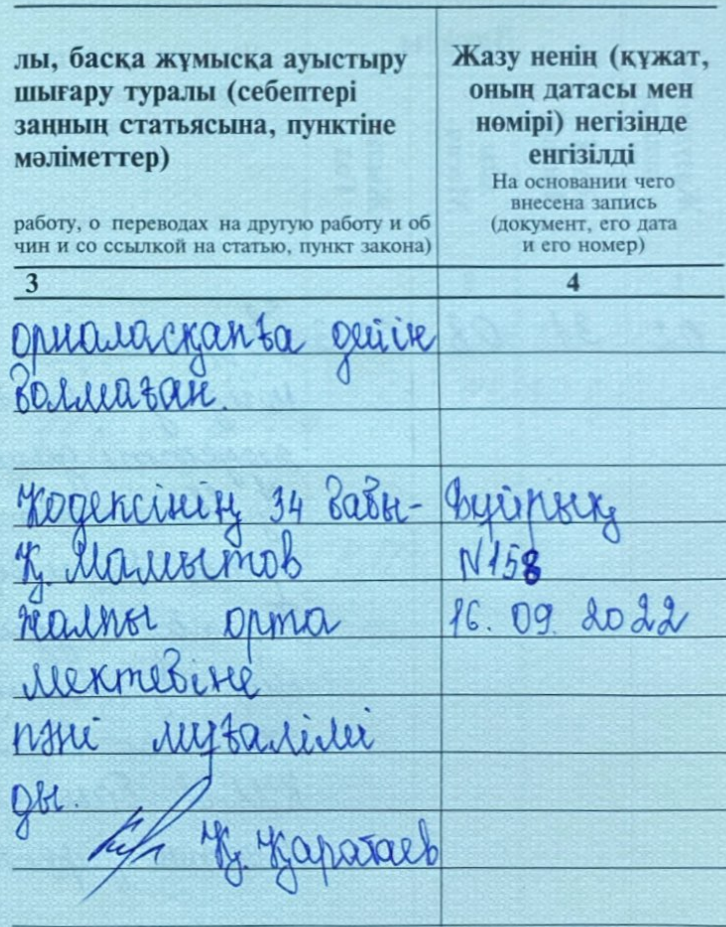 лы, басқа жұмысқа ауыстыру
шығару туралы (себептері
заңның статьясына, пунктіне
мәліметтер)
работу, о переводах на другую работу и об
чин и со ссылкой на статью, пункт закона)
Жазу ненің (құжат,
оның датасы мен
нөмірі) негізінде
енгізілді
На основании чего
внесена запись
(документ, его дата
и его номер)
3
4
орналасқанға дейін
болмаған.
Кодексінің 34 бабы- Бұйрық
Қ. Мамытов N158
жалпы орта 16. 09. 2022
мектебіне
пәні мұғалімі
ды.
Қ. Қаратаев